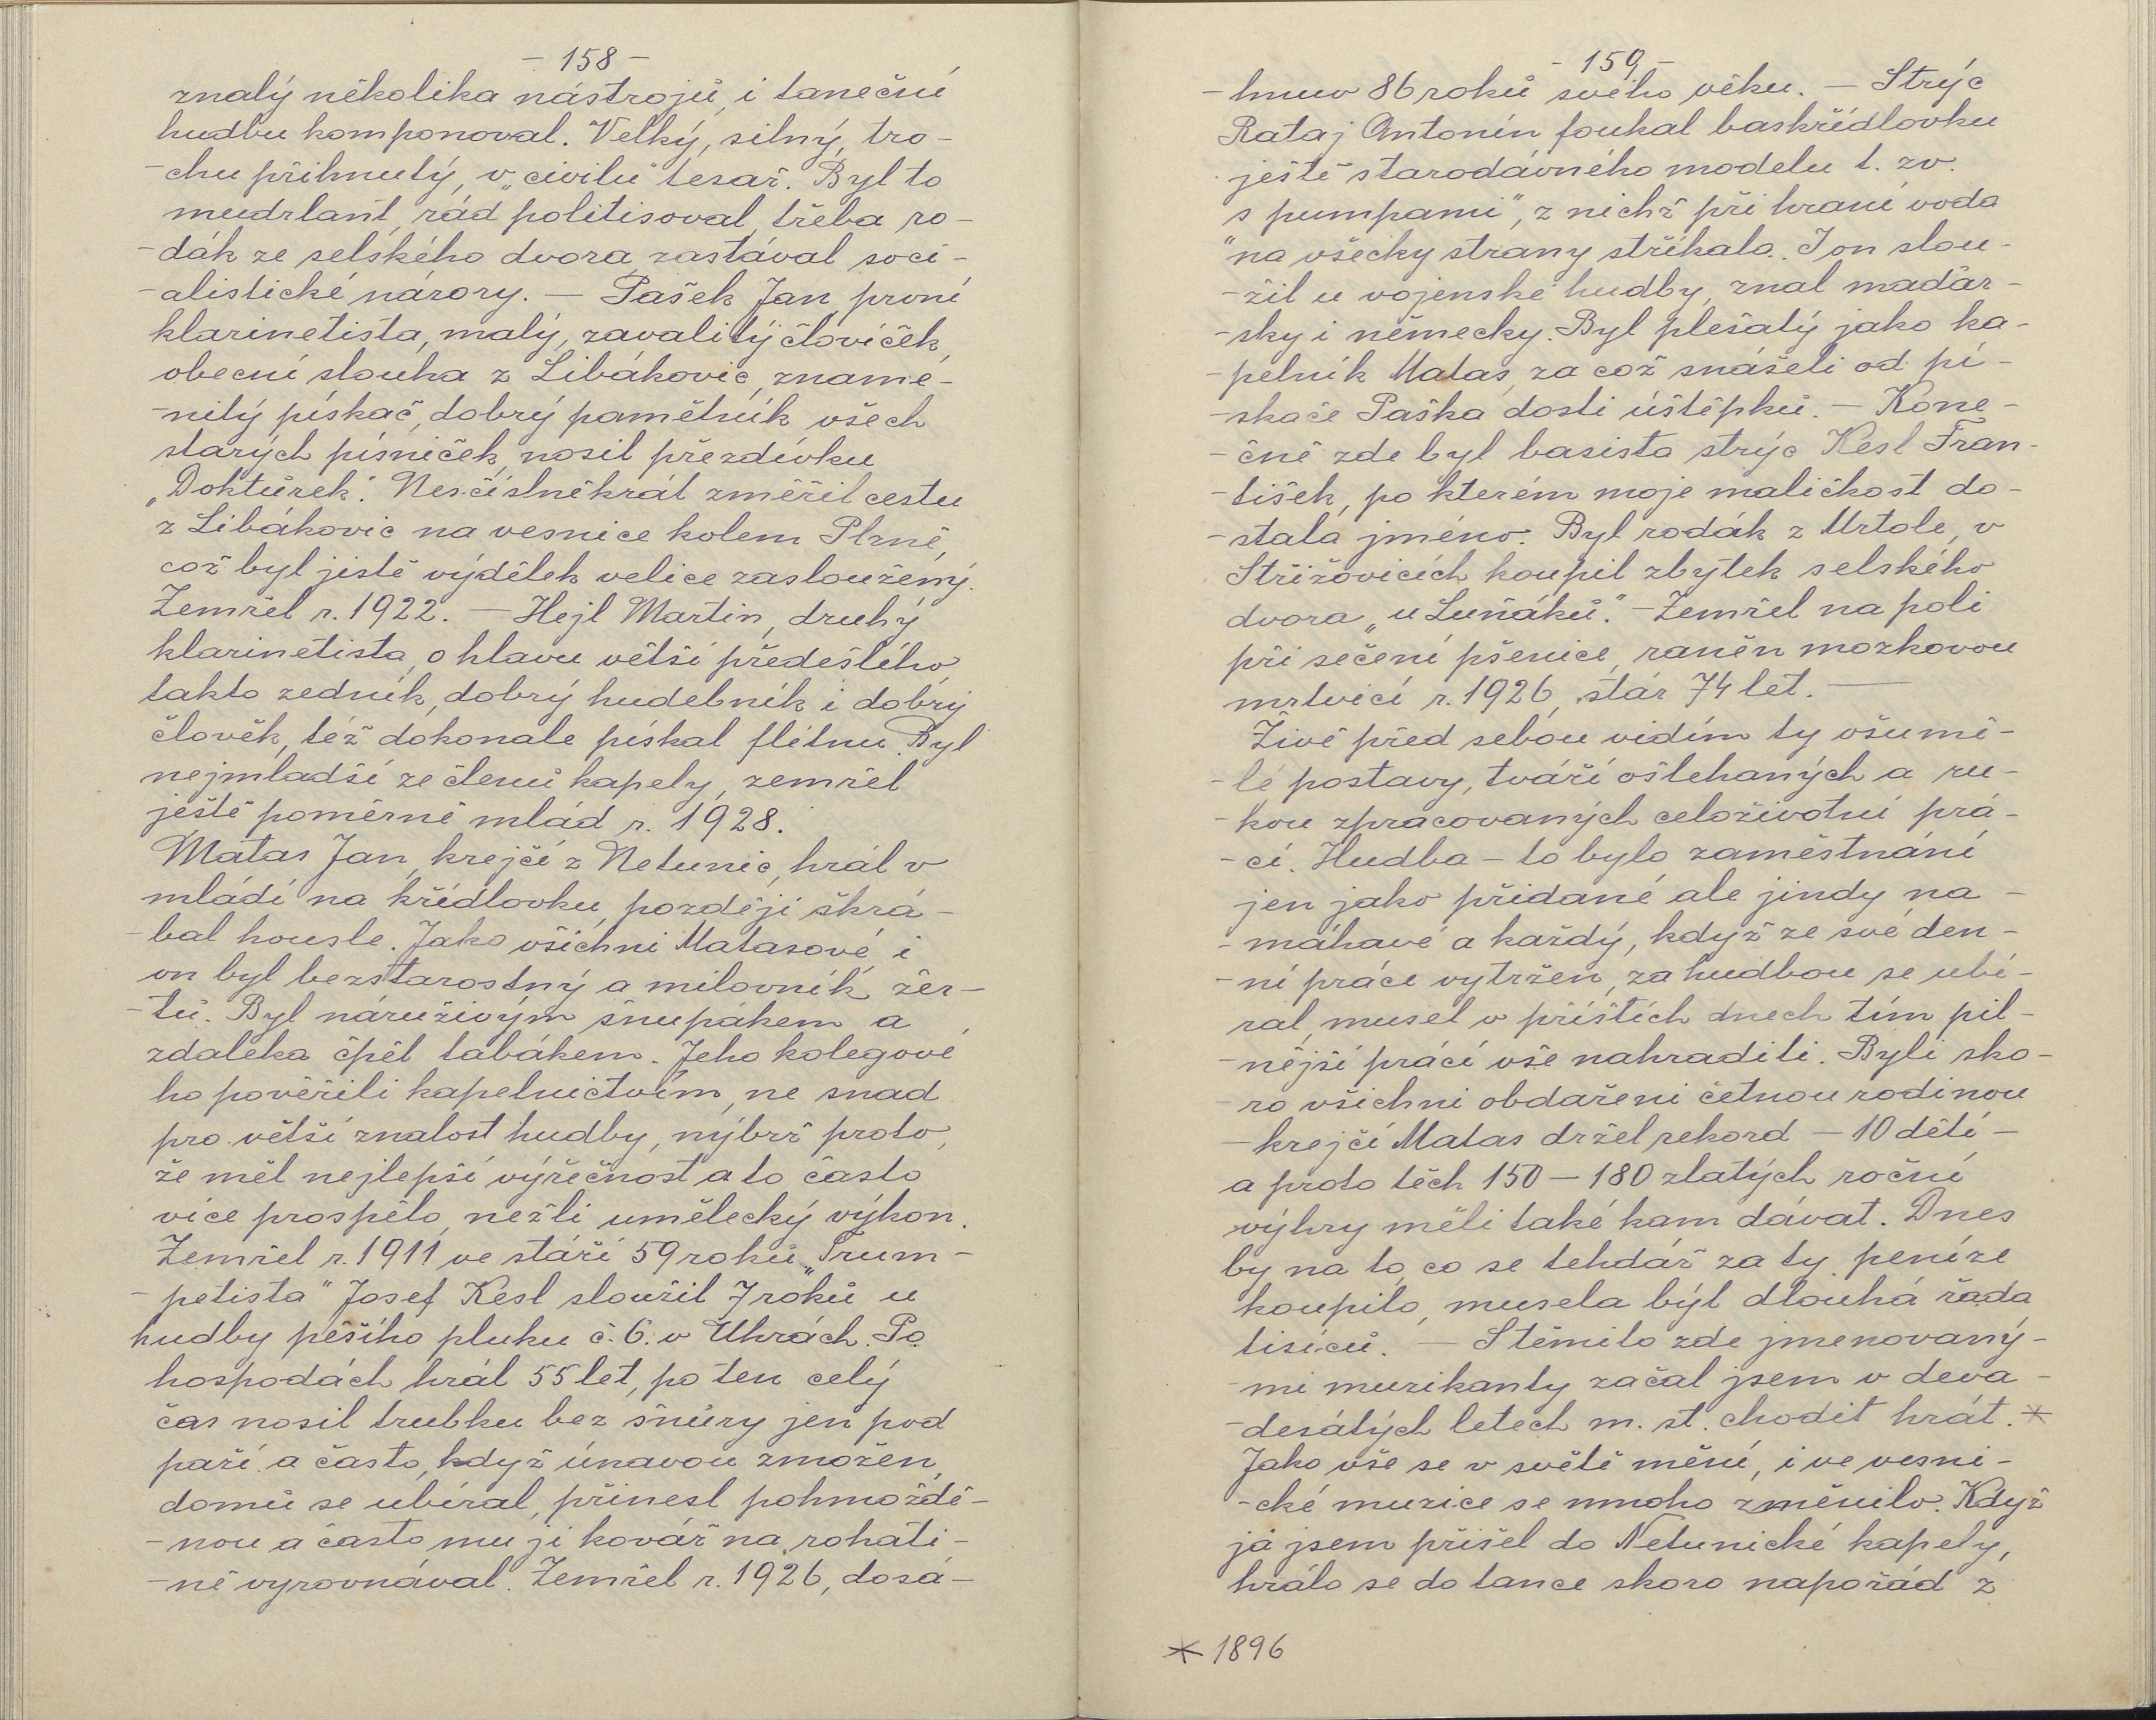 - 158 -
znalý několika nástrojů, i taneční
hudbu komponoval. Velký, silný, tro-
-chu přihnutý, v „civilu" tesař. Byl to
mudrlant, rád politisoval, třeba ro-
-dák ze selského dvora, zastával soci-
-alistické názory. — Pašek Jan, první
klarinetista, malý, zavalitý človíček,
obecní slouha z Libákovic, zname-
-nitý pískač, dobrý pamětník všech
starých písniček, nosil přezdívku
„Doktůrek". Nesčíslněkrát změřil cestu
z Libákovic na vesnice kolem Plzně,
což byl jistě výdělek velice zasloužený.
Zemřel r. 1922. — Hejl Martin, druhý
klarinetista, o hlavu větší předešlého,
takto zedník, dobrý hudebník i dobrý
člověk, též dokonale pískal flétnu. Byl
nejmladší ze členů kapely, zemřel
ještě poměrně mlád r. 1928.
Matas Jan, krejčí z Netunic, hrál v
mládí na křídlovku, později škrá-
-bal housle. Jako všichni Matasové i
on byl bezstarostný a milovník žer-
-tů. Byl náruživým šňupákem a
zdaleka čpěl tabákem. Jeho kolegové
ho pověřili kapelnictvím, ne snad
pro větší znalost hudby, nýbrž proto,
že měl nejlepší výřečnost a to často
více prospělo, nežli umělecký výkon.
Zemřel r. 1911 ve stáří 59 roků. „Trum-
-petista" Josef Kesl sloužil 7 roků u
hudby pěšího pluku č. 6. v Uhrách. Po
hospodách hrál 55 let, po ten celý
čas nosil trubku bez šňůry jen pod
paží a často, když únavou zmožen,
domů se ubíral, přinesl pohmoždě-
-nou a často mu ji kovář na rohati-
-ně vyrovnával. Zemřel r. 1926, dosá-
- 159 -
-hnuv 86 roků svého věku. — Strýc
Rataj Antonín foukal baskřídlovku
ještě starodávného modelu t. zv.
„s pumpami", z nichž při hraní voda
na všecky strany stříkala. I on slou-
-žil u vojenské hudby, znal maďar-
-sky i německy. Byl plešatý jako ka-
-pelník Matas, za což snášeli od pí-
-skače Paška dosti úštěpků. — Kone-
-čně zde byl basista strýc Kesl Fran-
-tišek, po kterém moje maličkost do-
-stala jméno. Byl rodák z Mrtole, v
Střižovicích koupil zbytek selského
dvora „u Luňáků". — Zemřel na poli
při sečení pšenice, raněn mozkovou
mrtvicí r. 1926, stár 74 let. —
Živě před sebou vidím ty ošumě-
-lé postavy, tváří ošlehaných a ru-
-kou zpracovaných celoživotní prá-
-cí. Hudba – to bylo zaměstnání
jen jako přidané ale jindy na-
-máhavé a každý, když ze své den-
-ní práce vytržen, za hudbou se ubí-
ral, musel v příštích dnech tím pil-
-nější prácí vše nahraditi. Byli sko-
-ro všichni obdařeni četnou rodinou
— krejčí Matas držel rekord — 10 dětí —
a proto těch 150 — 180 zlatých roční
výhry měli také kam dávat. Dnes
by na to, co se tehdáž za ty peníze
koupilo, musela být dlouhá řada
tisíců. — S těmito zde jmenovaný-
-mi muzikanty začal jsem v deva-
-desátých letech m. st. chodit hrát. *
Jako vše se v světě mění, i ve vesni-
-cké muzice se mnoho změnilo. Když
já jsem přišel do Netunické kapely,
hrálo se do tance skoro napořád z
* 1896